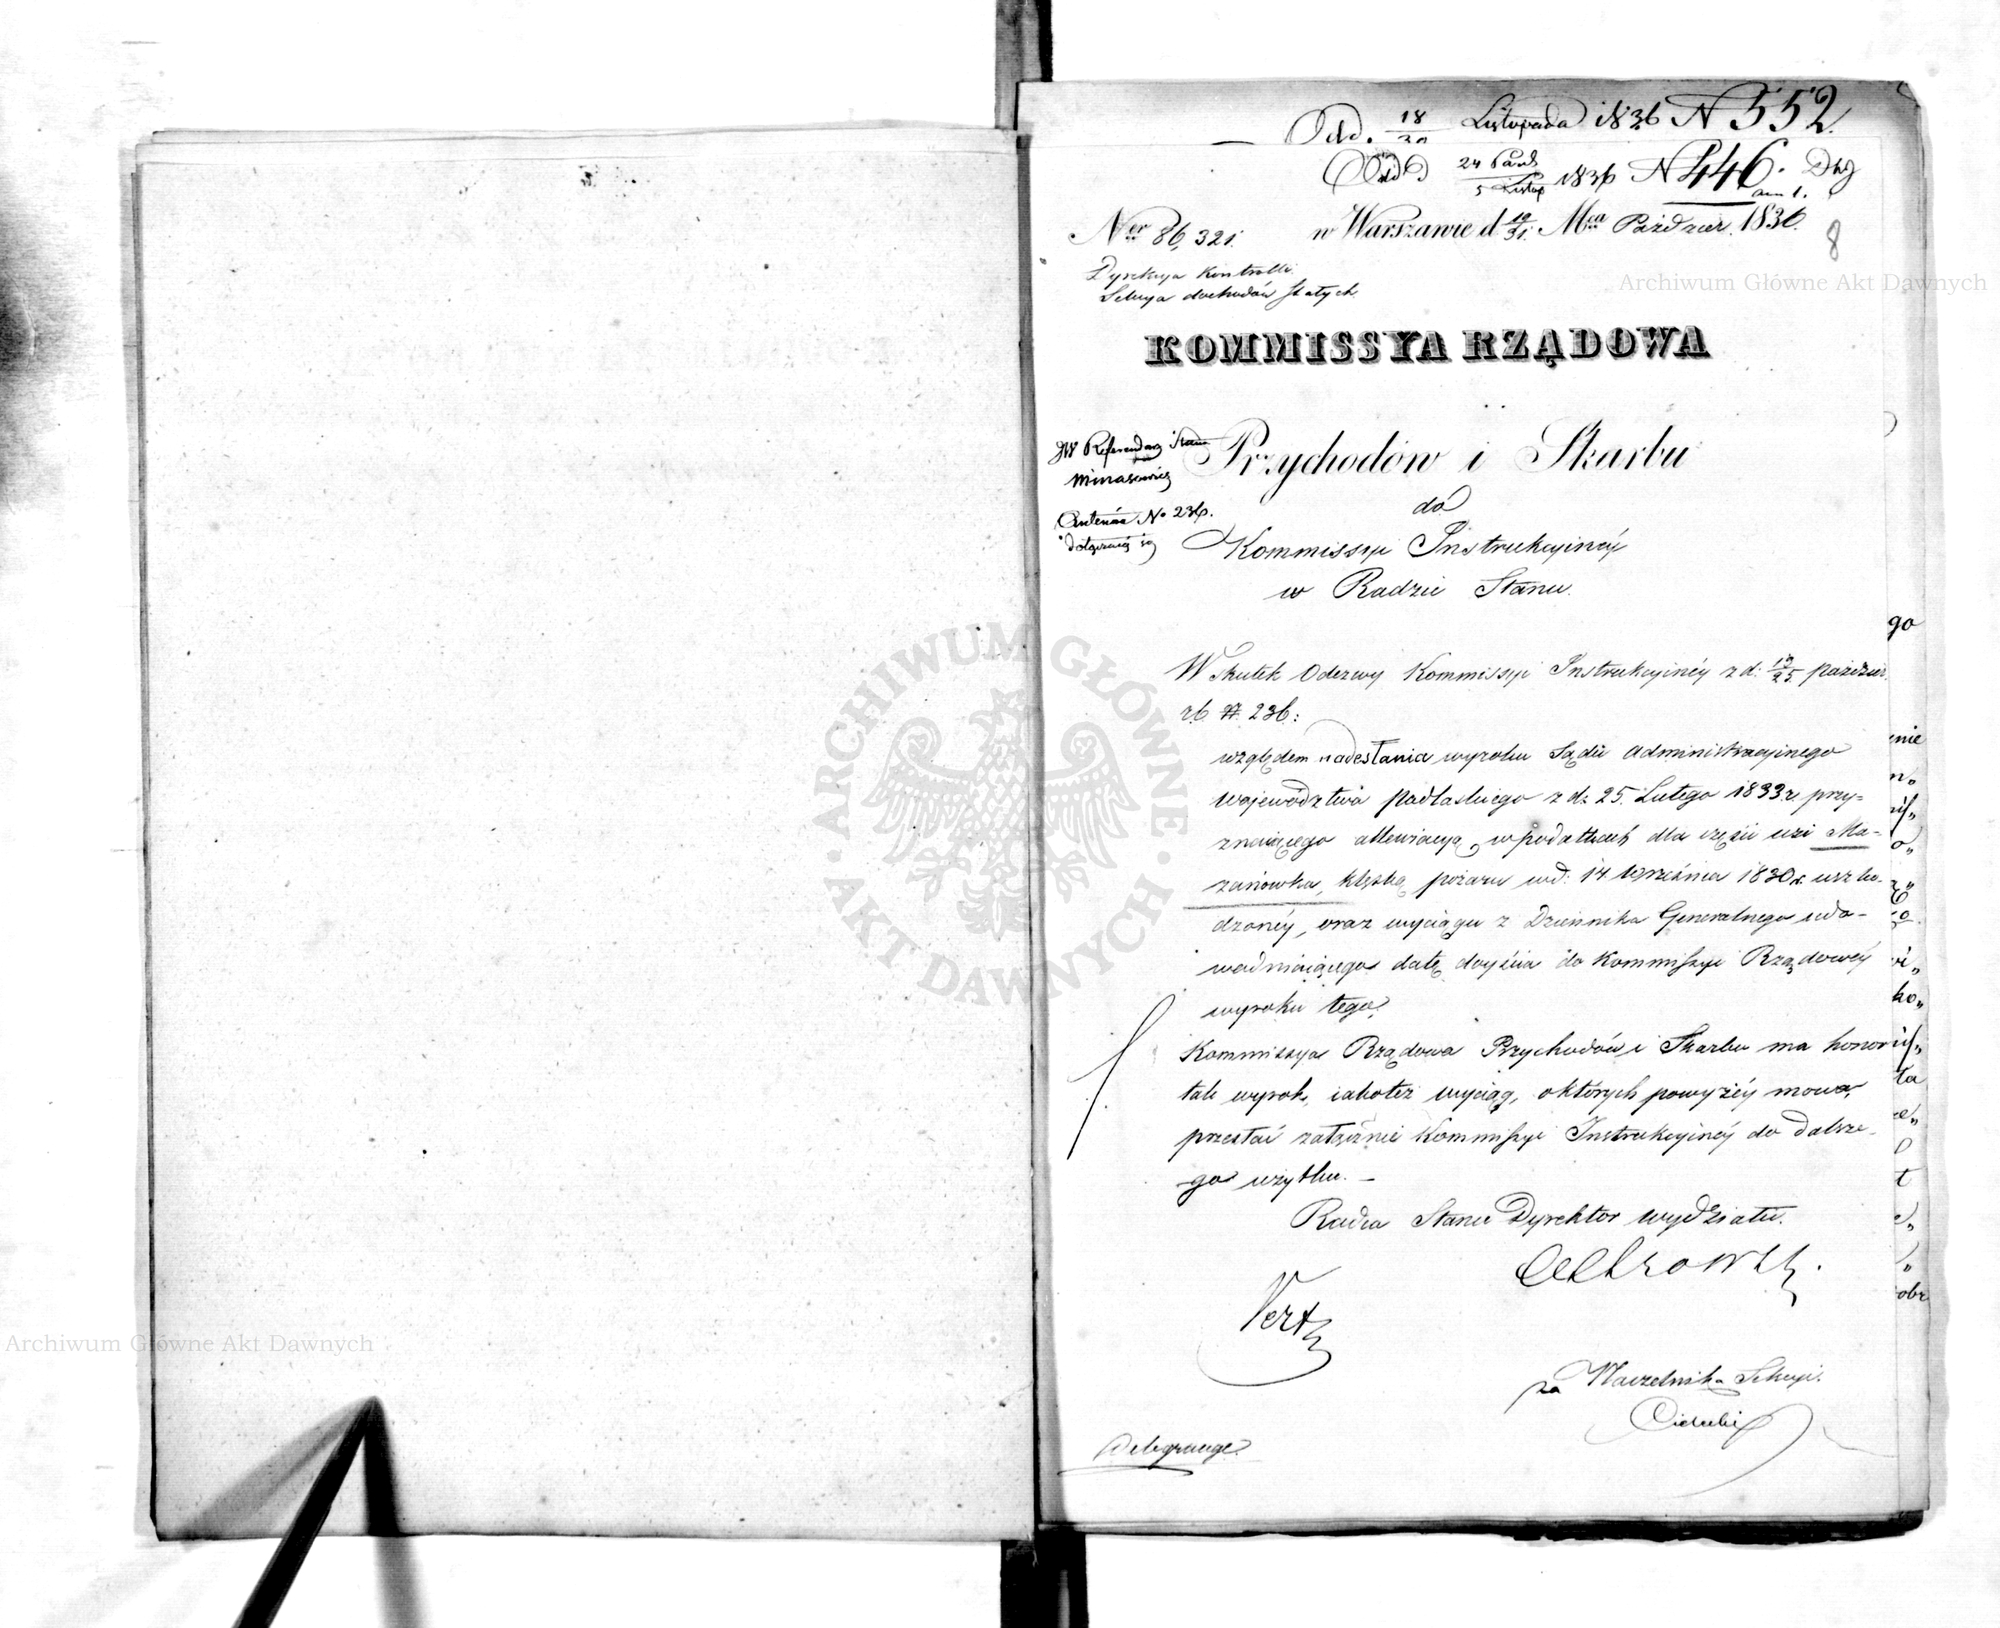 Odd. 18/30 Listopada 1836 N 552.
Odd 24 Paźd/5 Listop 1836 N 446.
Ner 86,321. w Warszawie d 19/31. Mca Paździer. 1836.
8
Dyrekcya Kontrolli
Sekcya dochodów stałych.
KOMMISSYA RZĄDOWA
Przychodów i Skarbu
JW Referendarz Stanu
Minasowicz
N° 236.
do
Kommissyi Instrukcyinéy
w Radzie Stanu.
W Skutek Odezwy Kommissyi Instrukcyinéy z d: 13/25. paździer.
r.b. N. 236:
względem nadesłania wyroku Sądu Administracyinego
Województwa podlaskiego z d: 25. Lutego 1833 r. przy=
znaiącego allewiacyą w podatkach dla części wsi Ma-
zanówka, klęską pożaru w d: 14 Września 1830 r. uszko-
dzonéy, oraz wyciągu z Dziennika Generalnego udo-
wadniaiącego datę doyścia do Kommissyi Rządowéy
wyroku tego,
Kommissya Rządowa Przychodów i Skarbu ma honor
tak wyrok, iakoteż wyciąg, o których powyżéy mowa,
przesłać załącznie Kommissyi Instrukcyinéy do dalsze-
go użytku. —
Radca Stanu Dyrektor wydziału.
za Naczelnika Sekcyi.
Archiwum Główne Akt Dawnych
Archiwum Główne Akt Dawnych
ARCHIWUM GŁÓWNE · AKT DAWNYCH ·